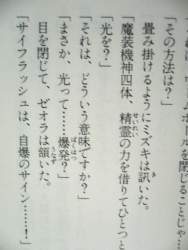 「その方法は？」
畳み掛けるようにミズキは訊いた。
「魔装機神四体、精霊の力を借りてひとっ
「光を？」
「それは、どういう意味ですか？」
「まさか、光って……爆発？」
目を閉じて、ゼオラは頷いた。
「サイフラッシュは、自爆のサイン……！」